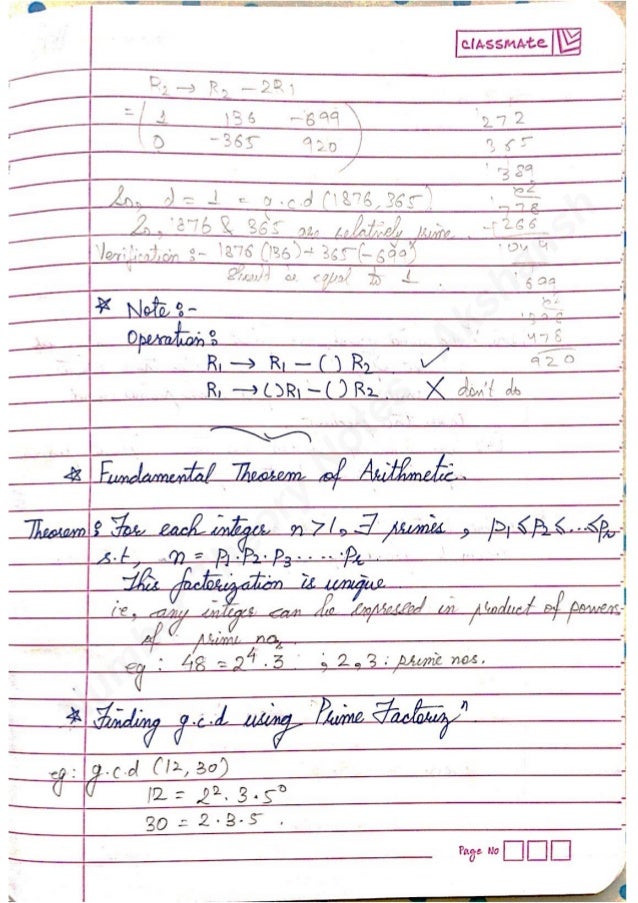 classmate
R2 → R2 - 2R1
= ( 1 136 -699
0 -365 920 )
272
365
389
62
778
1266
So, d = 1 = g.c.d (1876, 365)
So, 1876 & 365 are relatively prime.
Verification :- 1876 (136) + 365 (-699)
Should be equal to 1.
699
920
* Note :-
Operation :
R1 → R1 - ( ) R2 ✓
R1 → ( ) R1 - ( ) R2. X don't do
* Fundamental Theorem of Arithmetic.
Theorem : For each integer n > 1, ∃ primes, p1 ≤ p2 ≤ ... ≤ pr
s.t, n = p1 · p2 · p3 ..... pr.
This factorization is unique
ie, any integer can be expressed in product of powers
of prime nos
eg : 48 = 2^4 · 3 ; 2, 3 : prime nos.
* Finding g.c.d using Prime Factoriz^n.
eg : g.c.d (12, 30)
12 = 2^2 · 3 · 5^0
30 = 2 · 3 · 5 .
Page No